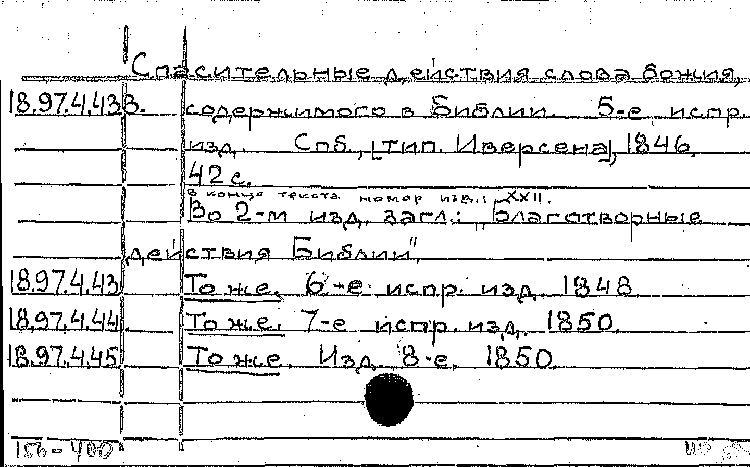 Спасительные действия слова божия,
18.97.4.433. содержимого в Библии. 5-е, испр.
изд. Спб., [тип. Иверсена], 1846.
42 с.
В конце текста номер изд.: XXII.
Во 2-м изд. загл.: "Благотворные
действия Библии".
18.97.4.43 То же. 6-е испр. изд. 1848
18.97.4.44. То же. 7-е испр. изд. 1850.
18.97.4.45 То же. Изд. 8-е. 1850.